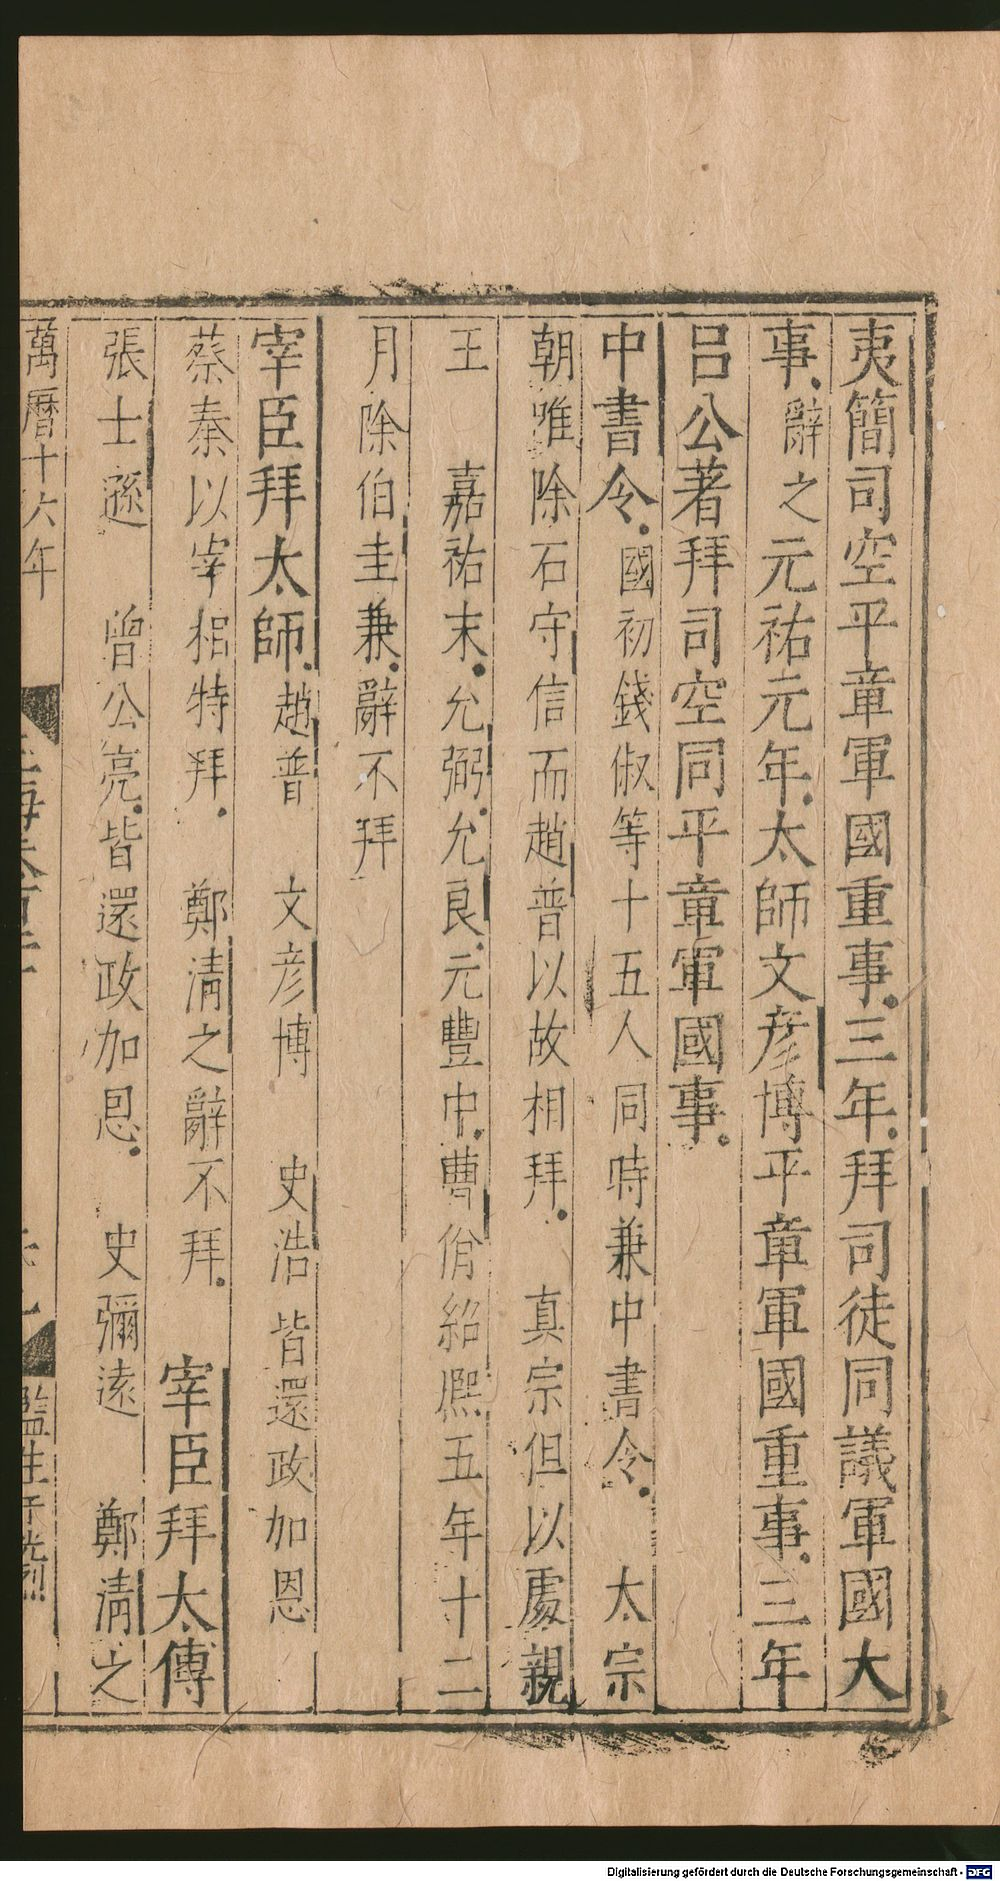 夷簡司空平章軍國重事三年拜司徒同議軍國大
事辭之元祐元年太師文彦博平章軍國重事三年
呂公著拜司空同平章軍國事
中書令國初錢俶等十五人同時兼中書令 太宗
朝唯除石守信而趙普以故相拜 真宗但以處親
王 嘉祐末允弼允良元豐中曹佾紹熙五年十二
月除伯圭兼辭不拜
宰臣拜太師趙普 文彦博 史浩皆還政加恩
蔡秦以宰相特拜 鄭清之辭不拜 宰臣拜太傅
張士遜 曾公亮皆還政加恩 史彌遠 鄭清之
萬曆十六年
監生
Digitalisierung gefördert durch die Deutsche Forschungsgemeinschaft - DFG